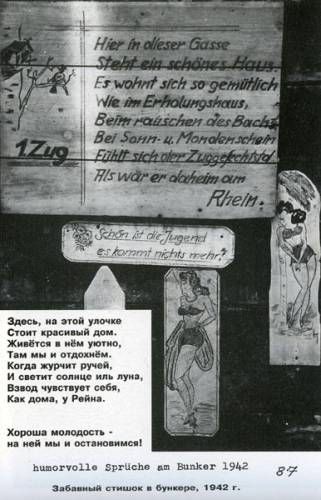 Hier in dieser Gasse
Steht ein schönes Haus.
Es wohnt sich so gemütlich
Wie im Erholungshaus,
Beim rauschen des Bachs
Bei Sonn- u. Mondenschein
Fühlt sich der Zuggefechtstd
Als wär er daheim am
Rhein.
1. Zug
Schön ist die Jugend
es kommt nichts mehr!
Здесь, на этой улочке
Стоит красивый дом.
Живётся в нём уютно,
Там мы и отдохнём.
Когда журчит ручей,
И светит солнце иль луна,
Взвод чувствует себя,
Как дома, у Рейна.
Хороша молодость -
на ней мы и остановимся!
humorvolle Sprüche am Bunker 1942
87
Забавный стишок в бункере, 1942 г.